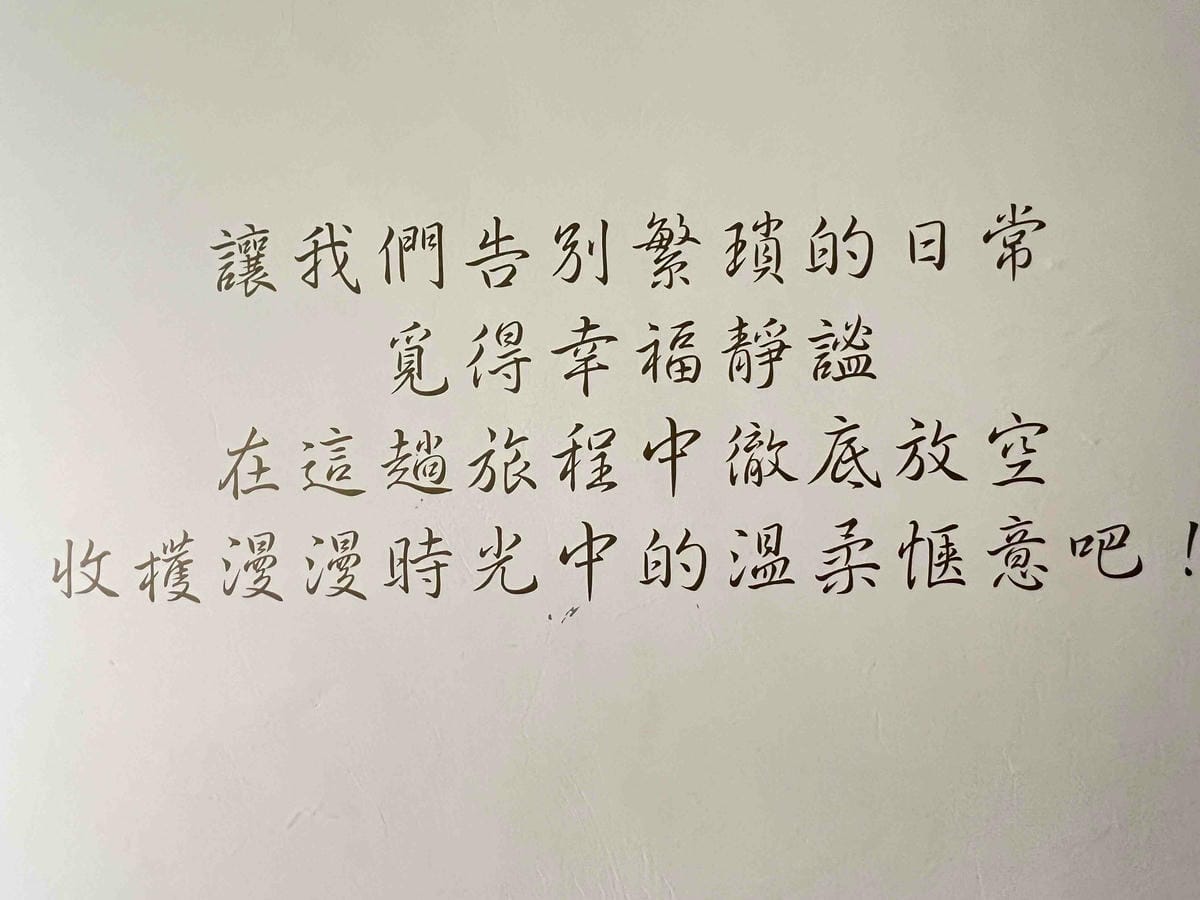 讓我們告別繁瑣的日常
覓得幸福靜謐
在這趟旅程中徹底放空
收穫漫漫時光中的溫柔愜意吧！